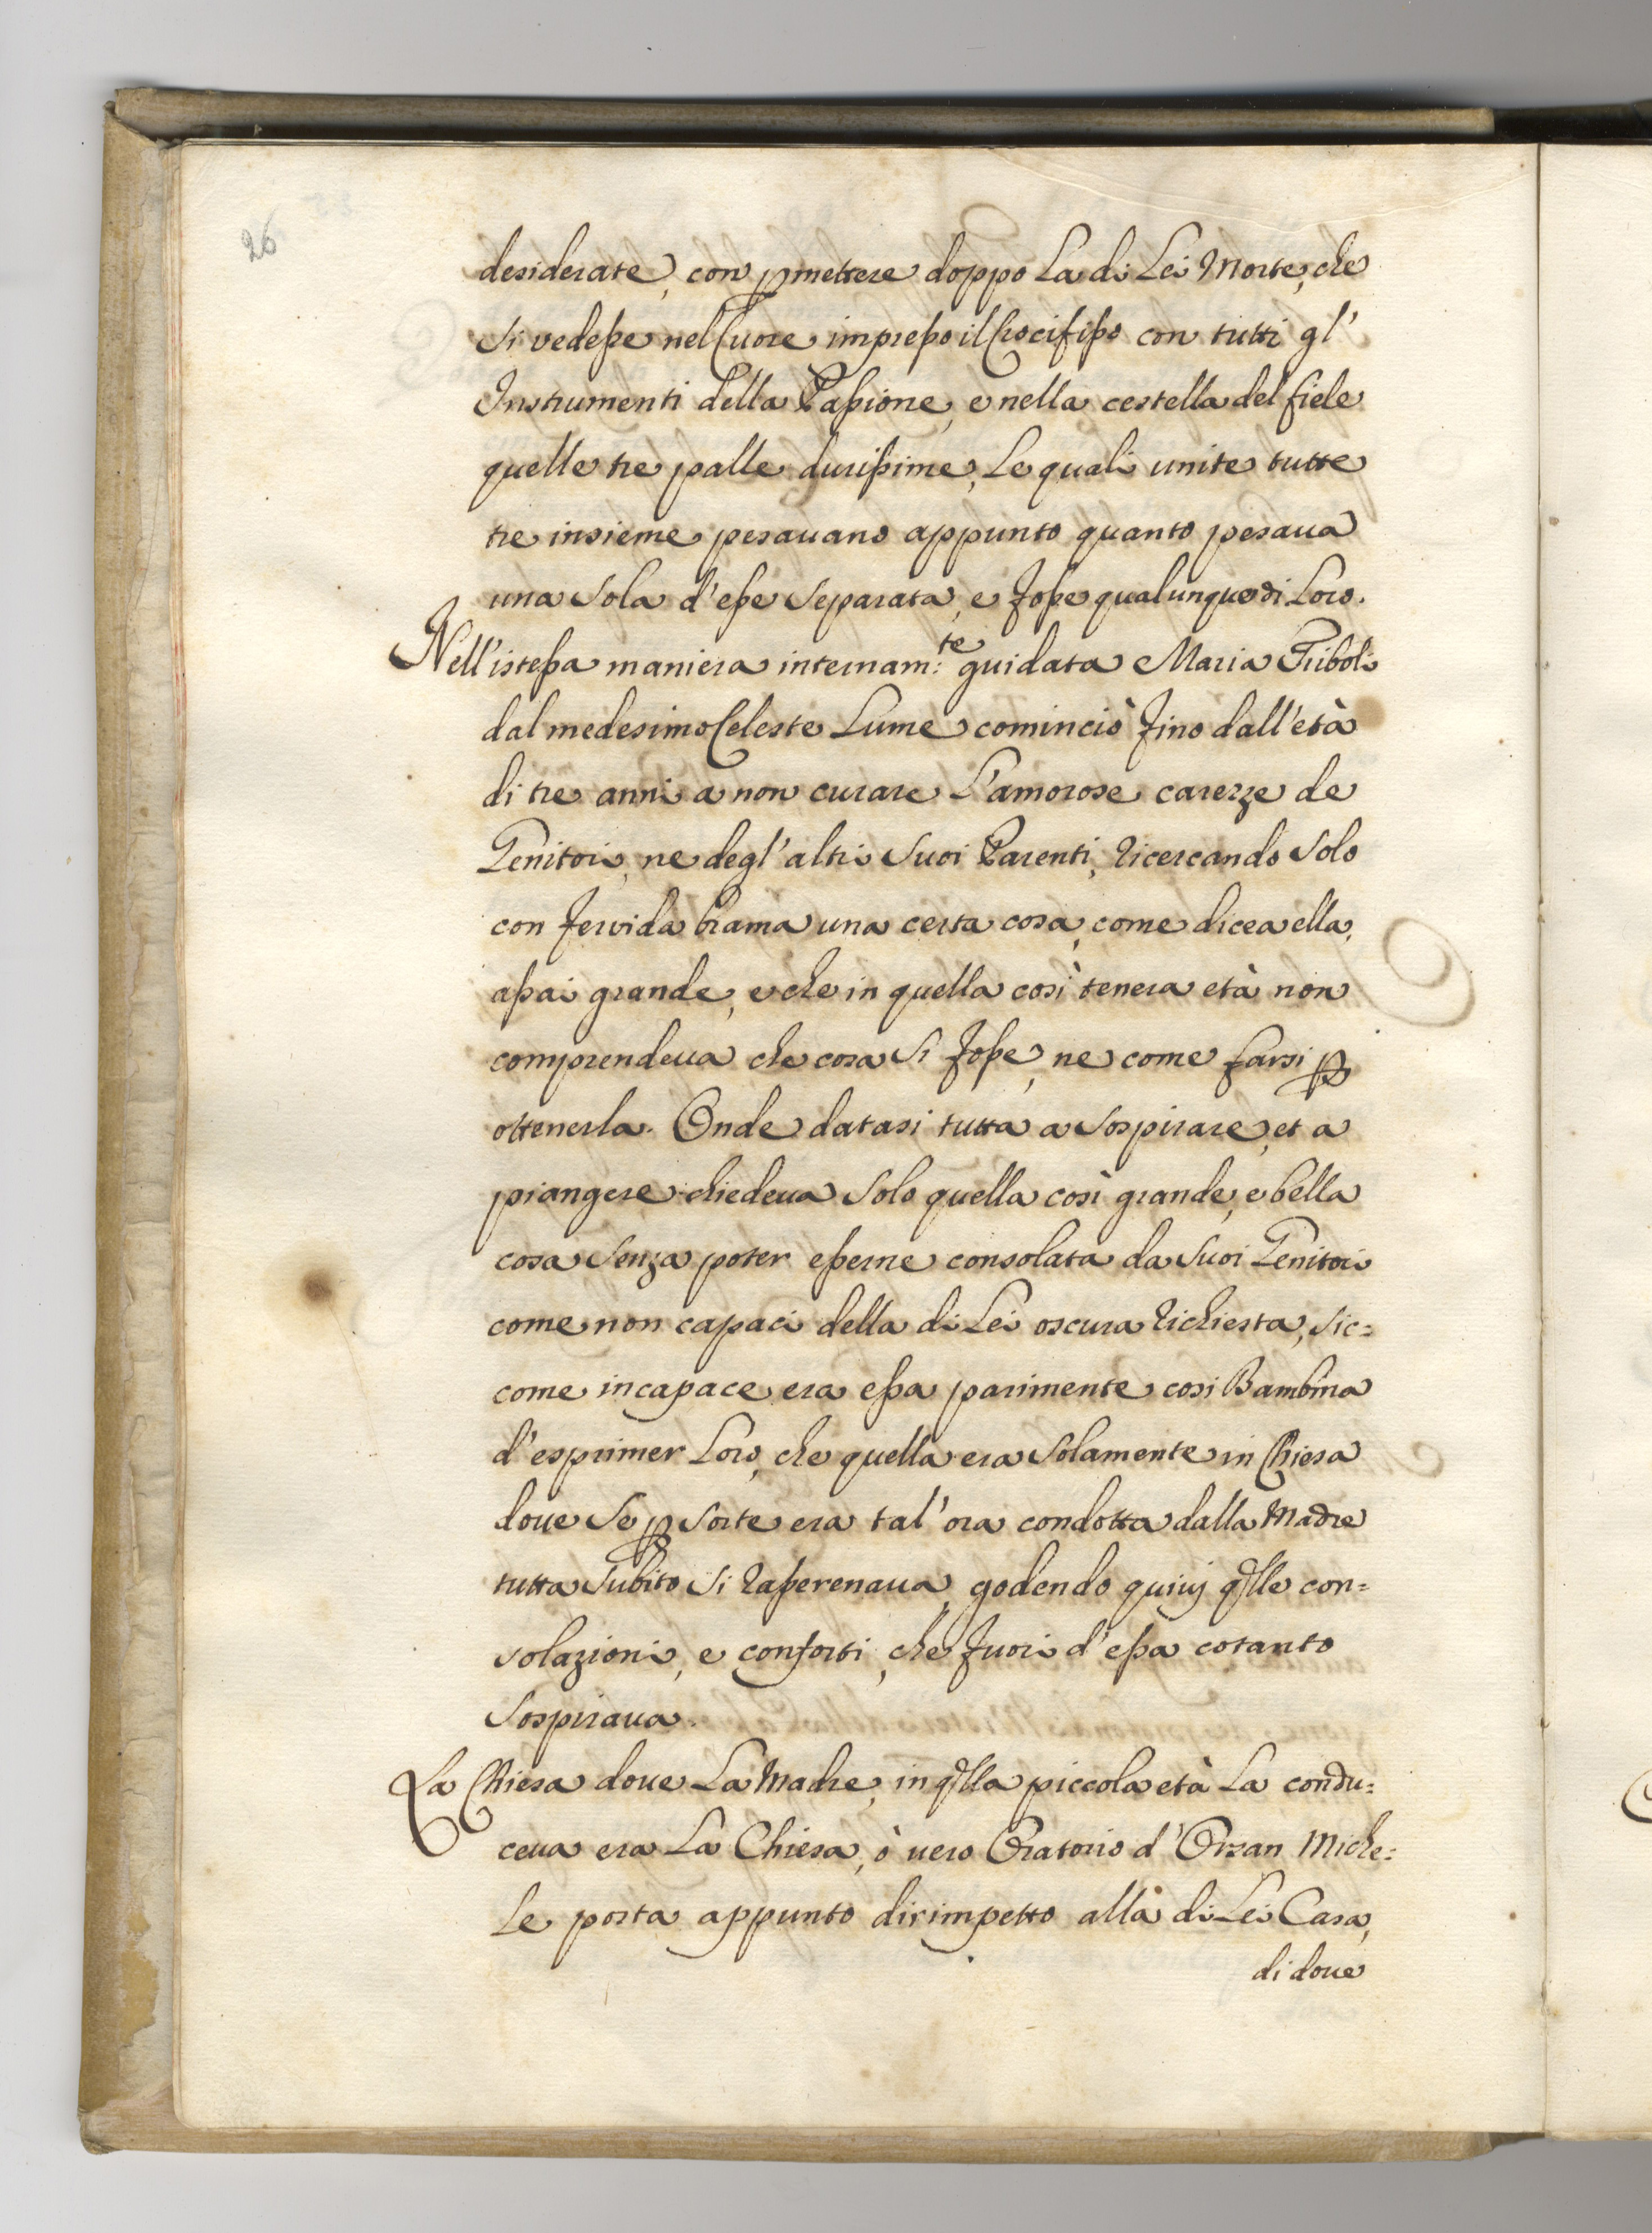 26
desiderate, con pmettere doppo La di Lei Morte, che
si vedeße nel Cuore impreßo il Crocifißo con tutti gl'
Instrumenti della Paßione, e nella cestella del fiele
quelle tre palle durißime, Le quali unite tutte
tre insieme pesauano appunto quanto pesaua
una sola d'eße separata, e foße qualunque di Loro.
Nell'isteßa maniera internam:te guidata Maria Triboli
dal medesimo Celeste Lume cominciò fino dall'età
di tre anni a non curare L'amorose carezze de
Genitori, ne degl'altri suoi Parenti, ricercando solo
con fervida brama una certa cosa, come dicea ella,
aßai grande, e che in quella così tenera età non
comprendeua che cosa si foße, ne come farsi p
ottenerla. Onde datasi tutta a sospirare, et a
piangere chiedeua solo quella così grande, e bella
cosa senza poter eßerne consolata da suoi Genitori
come non capaci della di Lei oscura richiesta, sic=
come incapace era eßa parimente così Bambina
d'esprimer Loro, che quella era solamente in Chiesa
doue se p sorte era tal'ora condotta dalla Madre
tutta subito si raßerenaua, godendo quiuj qlle con=
solazioni, e conforti, che fuori d'eßa cotanto
sospiraua.
La Chiesa doue La Madre, in qlla piccola età La condu=
ceua era La Chiesa, ò uero Oratorio d'Orsan Miche=
Le posta appunto dirimpetto alla di Lei Casa,
di doue